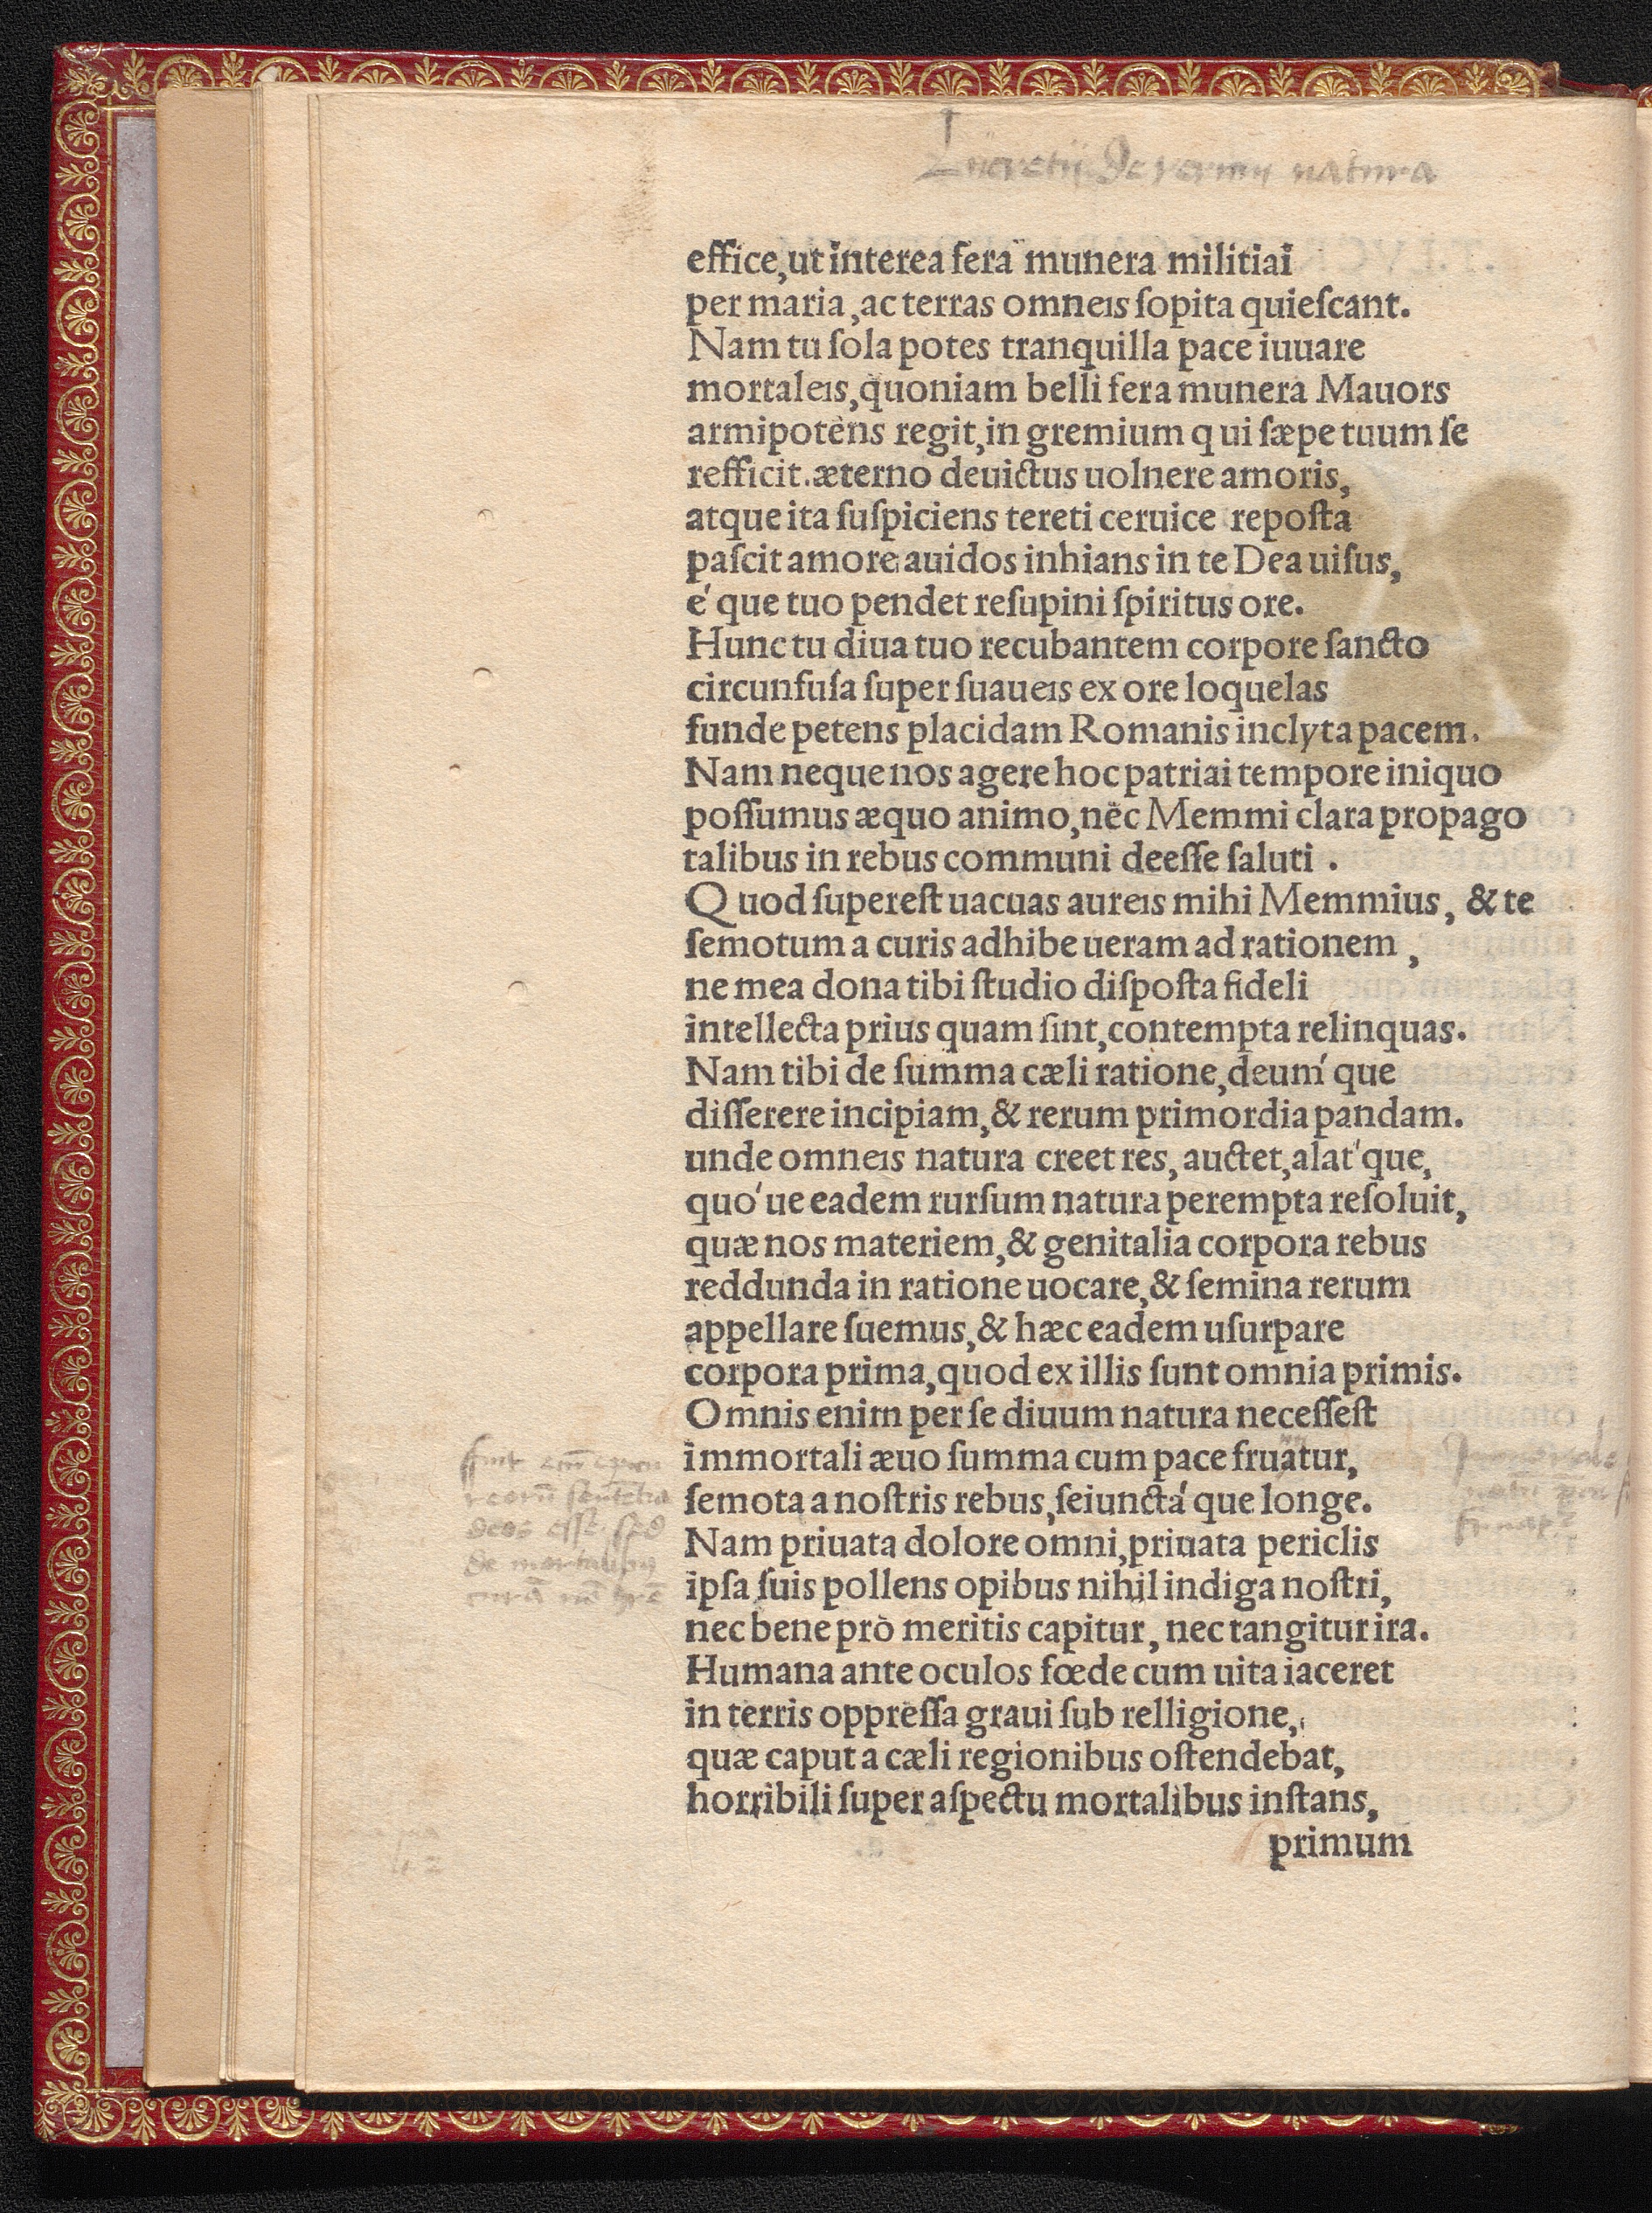 Lucretii De rerum natura
effice,ut interea fera munera militiai
per maria,ac terras omneis ſopita quieſcant.
Nam tu ſola potes tranquilla pace iuuare
mortaleis,quoniam belli fera munera Mauors
armipotens regit,in gremium qui ſæpe tuum ſe
refficit.æterno deuictus uolnere amoris,
atque ita ſuſpiciens tereti ceruice repoſta
paſcit amore auidos inhians in te Dea uiſus,
é que tuo pendet reſupini ſpiritus ore.
Hunc tu diua tuo recubantem corpore ſancto
circunfuſa ſuper ſuaueis ex ore loquelas
funde petens placidam Romanis inclyta pacem.
Nam neque nos agere hoc patriai tempore iniquo
poſſumus æquo animo,nec Memmi clara propago
talibus in rebus communi deeſſe ſaluti .
Quod ſupereſt uacuas aureis mihi Memmius, & te
ſemotum a curis adhibe ueram ad rationem ,
ne mea dona tibi ſtudio diſpoſta fideli
intellecta prius quam ſint,contempta relinquas.
Nam tibi de ſumma cæli ratione,deum´ que
diſſerere incipiam,& rerum primordia pandam.
unde omneis natura creet res, auctet,alat´ que,
quo´ ue eadem rurſum natura perempta reſoluit,
quæ nos materiem,& genitalia corpora rebus
reddunda in ratione uocare,& ſemina rerum
appellare ſuemus,& hæc eadem uſurpare
corpora prima,quod ex illis ſunt omnia primis.
Omnis enim per ſe diuum natura neceſſeſt
immortali æuo ſumma cum pace fruatur,
ſemota a noſtris rebus,ſeiunctá que longe.
Nam priuata dolore omni,priuata periclis
ipſa ſuis pollens opibus nihil indiga noſtri,
nec bene pro meritis capitur, nec tangitur ira.
Humana ante oculos fœde cum uita iaceret
in terris oppreſſa graui ſub relligione,
quæ caput a cæli regionibus oſtendebat,
horribili ſuper aſpectu mortalibus inſtans,
primum
deos eſſe ſed
de mortalibus